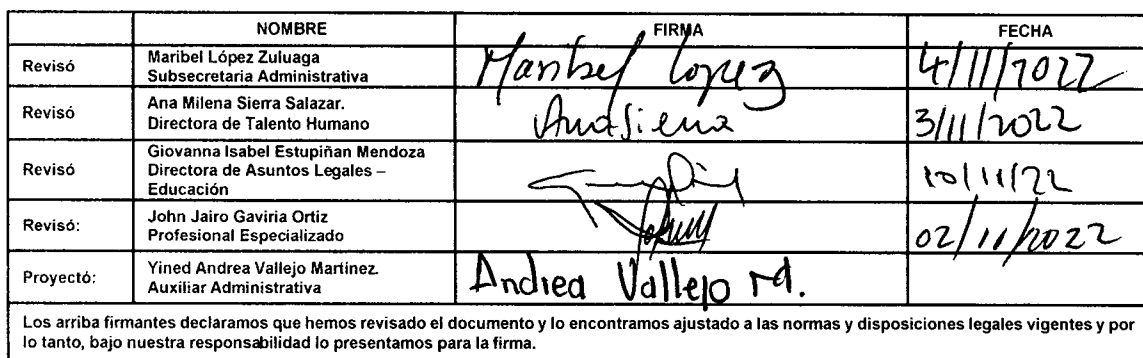 NOMBRE FIRMA FECHA
Revisó Maribel López Zuluaga
Subsecretaria Administrativa Maribel Lopez 4/11/2022
Revisó Ana Milena Sierra Salazar.
Directora de Talento Humano AnaSierra 3/11/2022
Revisó Giovanna Isabel Estupiñan Mendoza
Directora de Asuntos Legales –
Educación 10/11/22
Revisó: John Jairo Gaviria Ortiz
Profesional Especializado 02/11/2022
Proyectó: Yined Andrea Vallejo Martínez.
Auxiliar Administrativa Andrea Vallejo M.
Los arriba firmantes declaramos que hemos revisado el documento y lo encontramos ajustado a las normas y disposiciones legales vigentes y por
lo tanto, bajo nuestra responsabilidad lo presentamos para la firma.